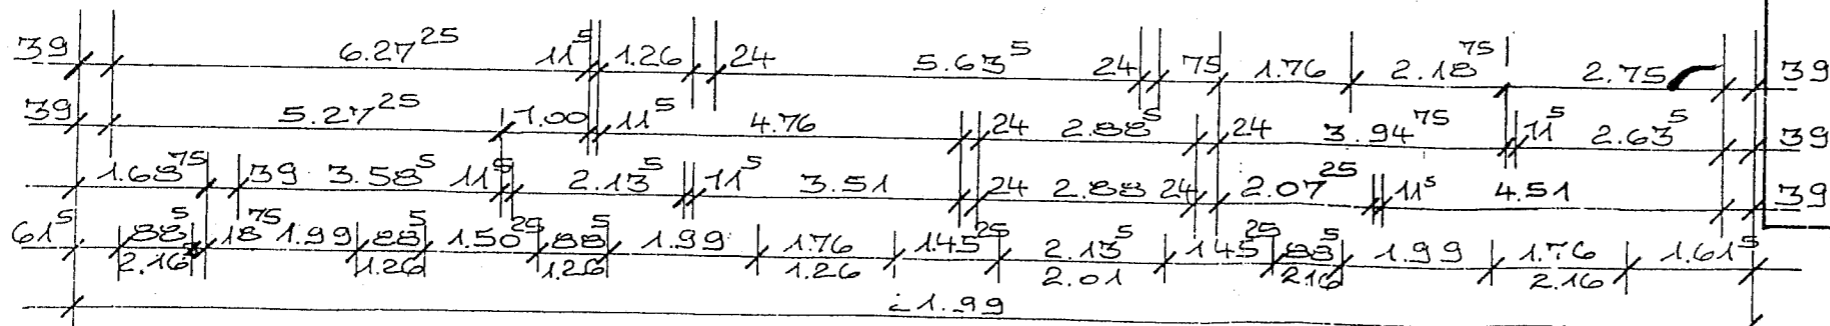 39 6.27²⁵ 11⁵ 1.26 24 5.63⁵ 24 75 1.76 2.18⁷⁵ 2.75 39
39 5.27²⁵ 1.00 11⁵ 4.76 24 2.88⁵ 24 3.94⁷⁵ 11⁵ 2.63⁵ 39
1.68⁷⁵ 39 3.58⁵ 11⁵ 2.13⁵ 11⁵ 3.51 24 2.88 24 2.07²⁵ 11⁵ 4.51 39
61⁵ 88⁵ 18⁷⁵ 1.99 88⁵ 1.50²⁵ 88⁵ 1.99 1.76 1.45²⁵ 2.13⁵ 1.45²⁵ 88⁵ 1.99 1.76 1.61⁵
2.16 1.26 1.26 1.26 2.01 2.16 2.16
1.99